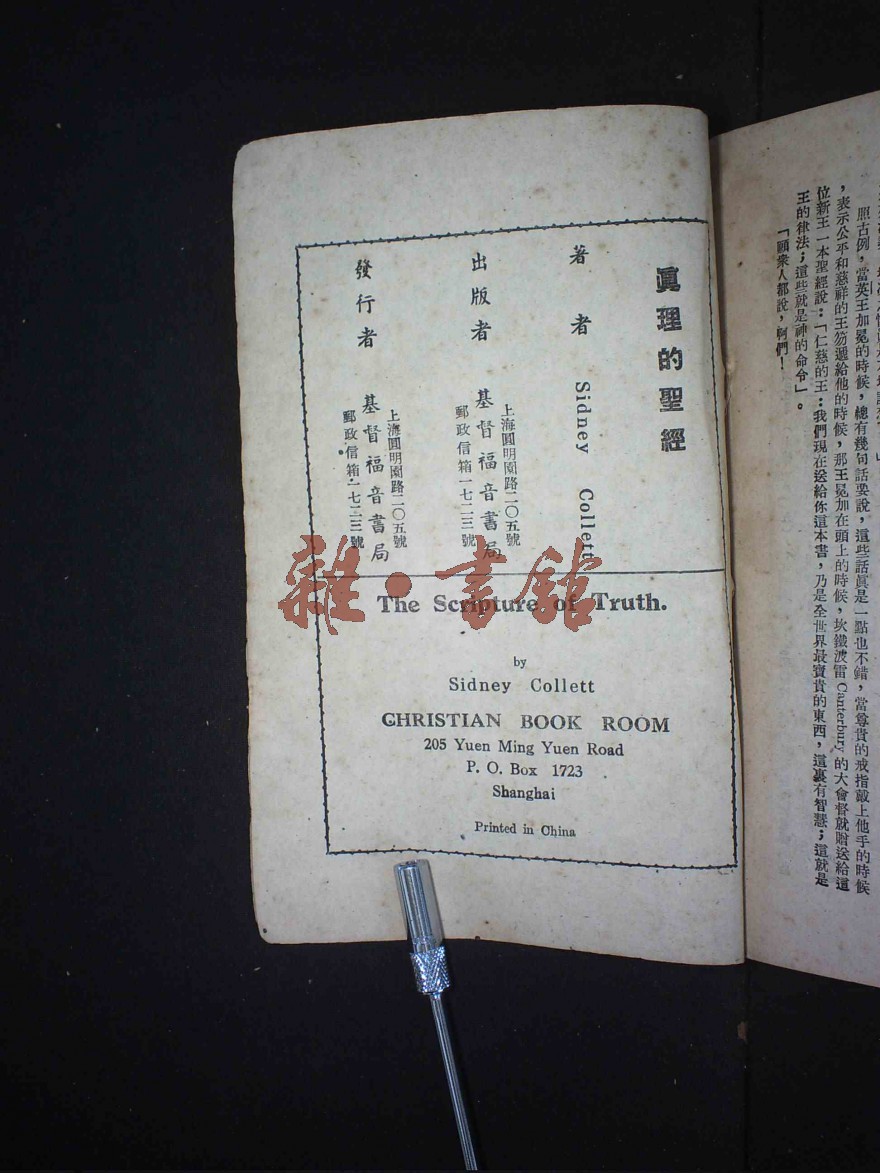 照古例，當英王加冕的時候，總有幾句話要說，這些話眞是一點也不錯，當尊貴的戒指戴上他手的時候
，表示公平和慈祥的王笏遞給他的時候，那王冕加在頭上的時候，坎鐵波雷Canterbury的大會督就贈送給這
位新王一本聖經說：「仁慈的王：我們現在送給你這本書，乃是全世界最寶貴的東西，這裏有智慧；這就是
王的律法；這些就是神的命令」。
「願衆人都說，阿們！
眞理的聖經
著者 Sidney Collett
出版者 基督福音書局
上海圓明園路二〇五號
郵政信箱一七二三號
發行者 基督福音書局
上海圓明園路二〇五號
郵政信箱一七二三號
The Scripture of Truth.
by
Sidney Collett
CHRISTIAN BOOK ROOM
205 Yuen Ming Yuen Road
P. O. Box 1723
Shanghai
Printed in China
雜·書館